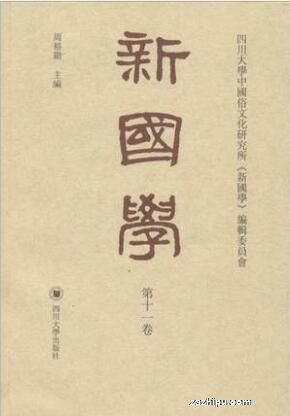 四川大學中國俗文化研究所《新國學》編輯委員會
新國學
第十一卷
周裕鍇 主編
四川大學出版社
zazhipu.com